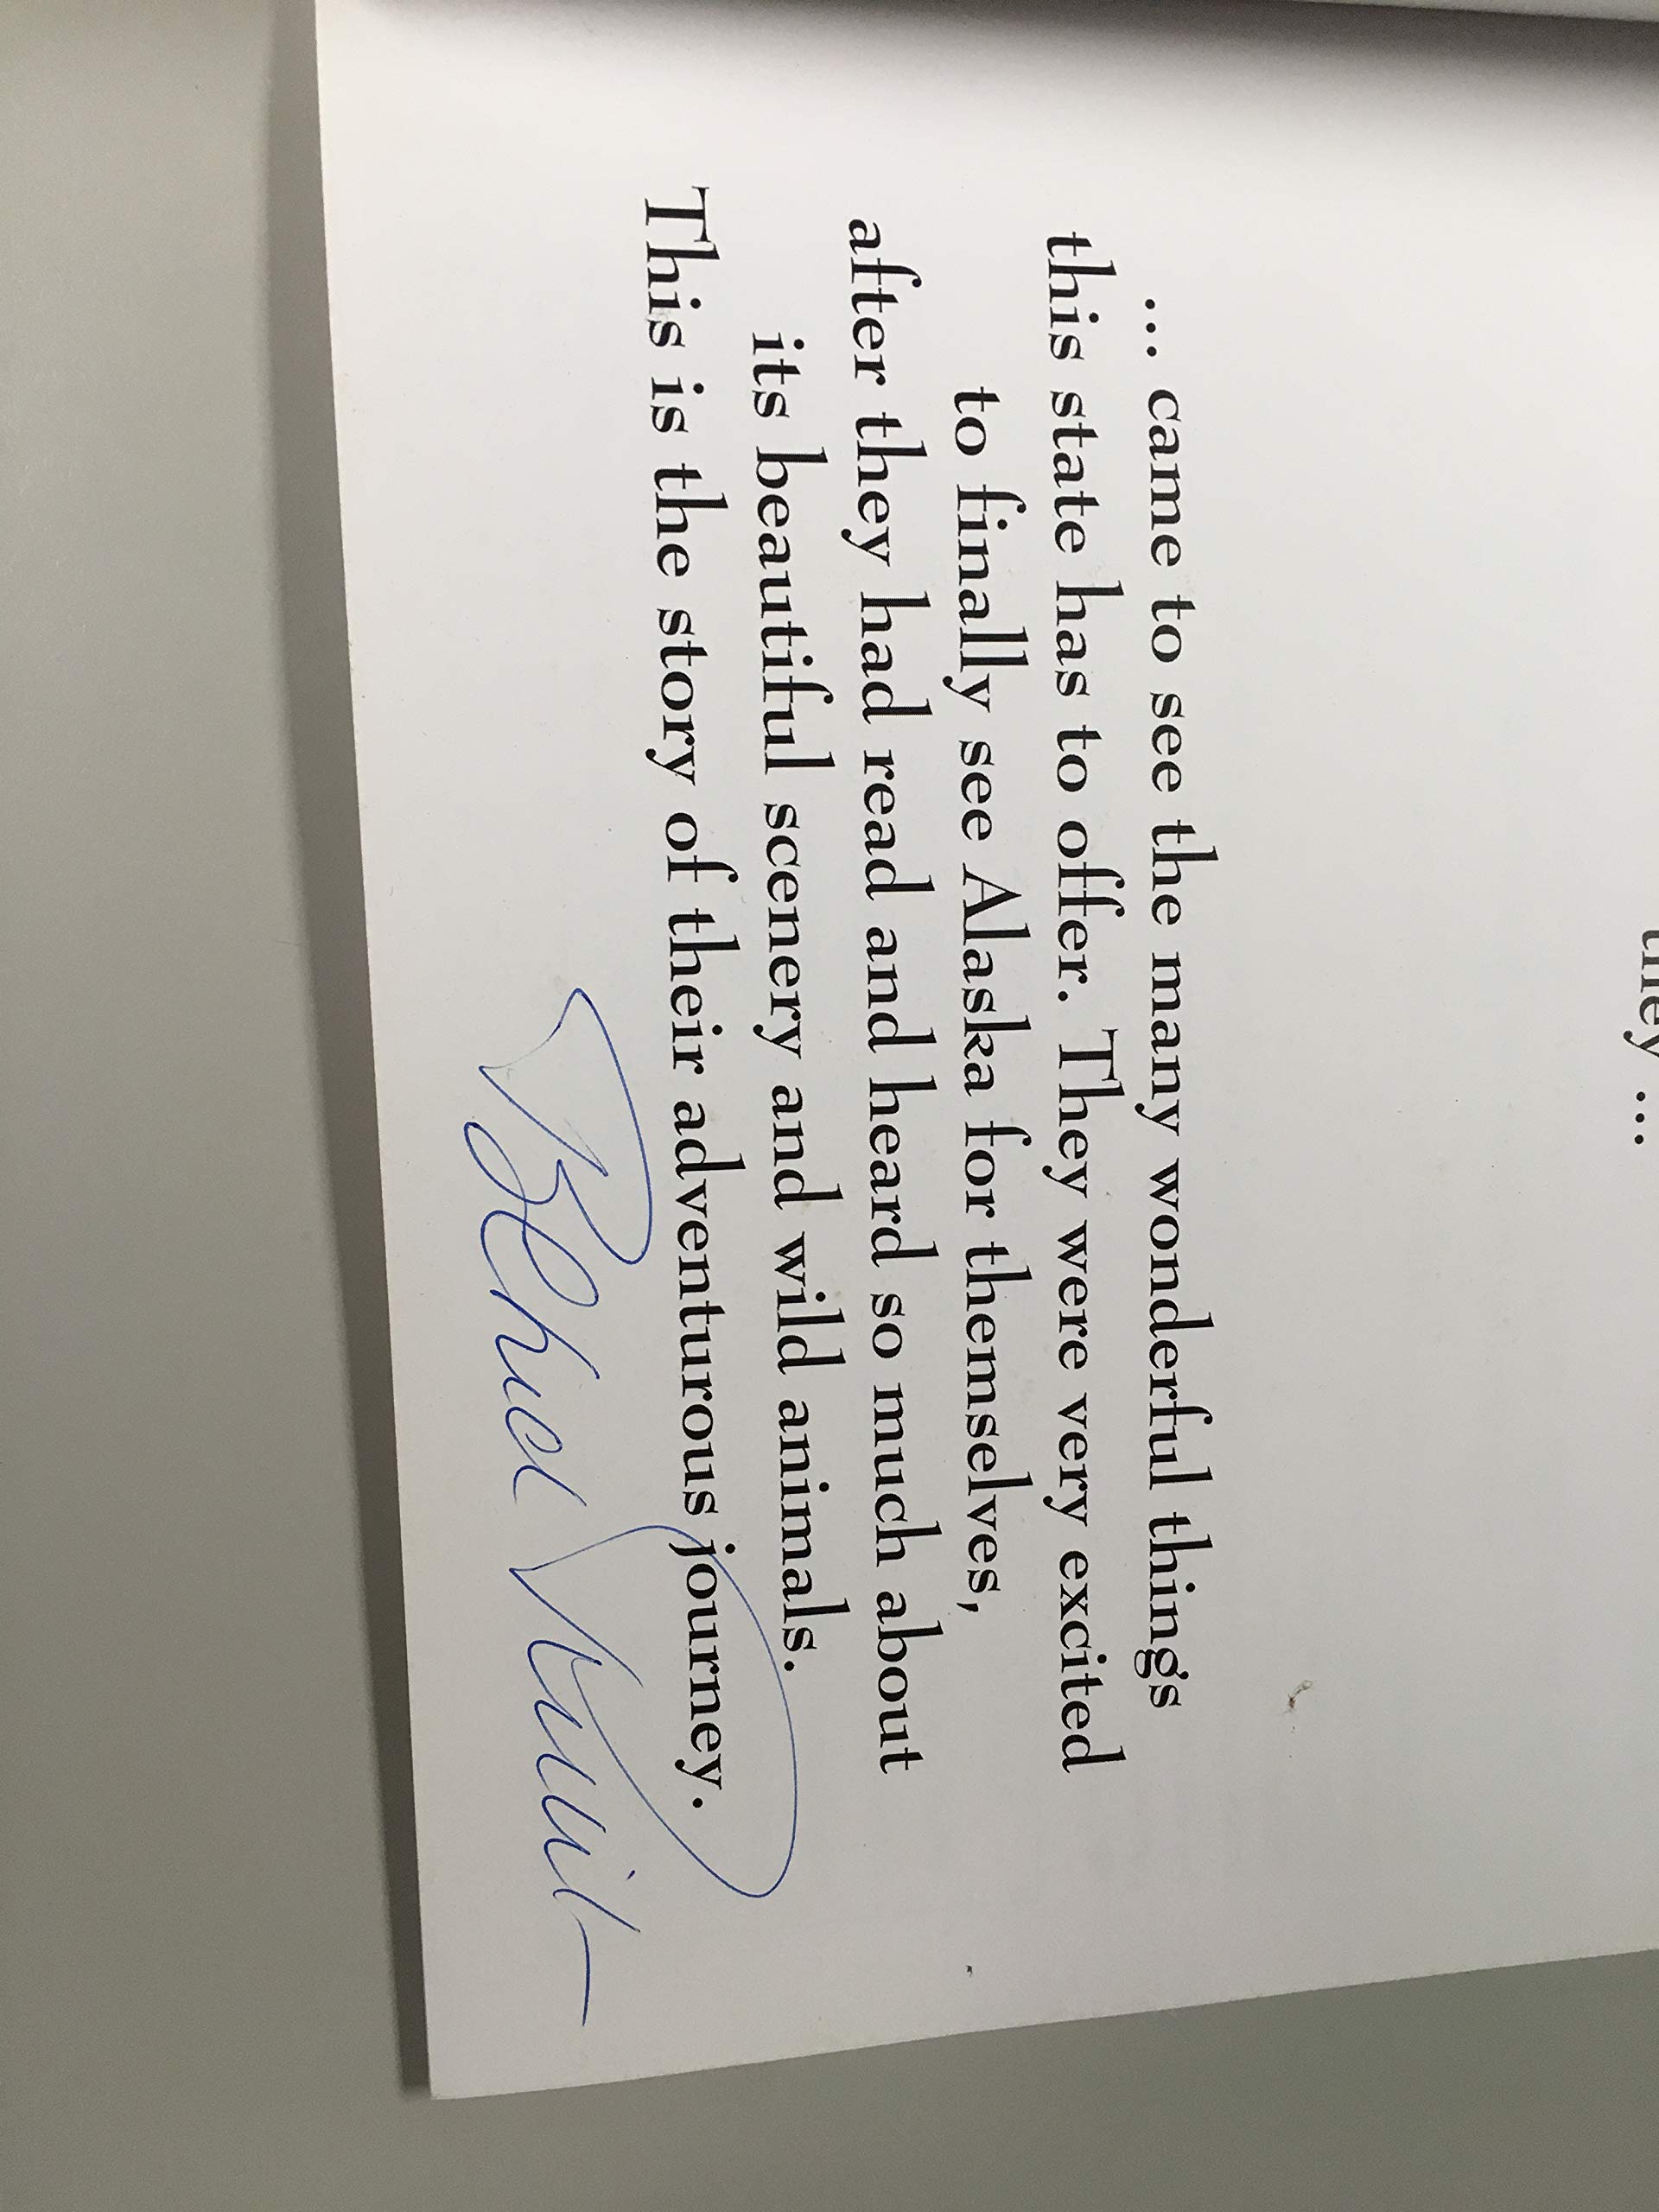 they ...
... came to see the many wonderful things
this state has to offer. They were very excited
to finally see Alaska for themselves,
after they had read and heard so much about
its beautiful scenery and wild animals.
This is the story of their adventurous journey.